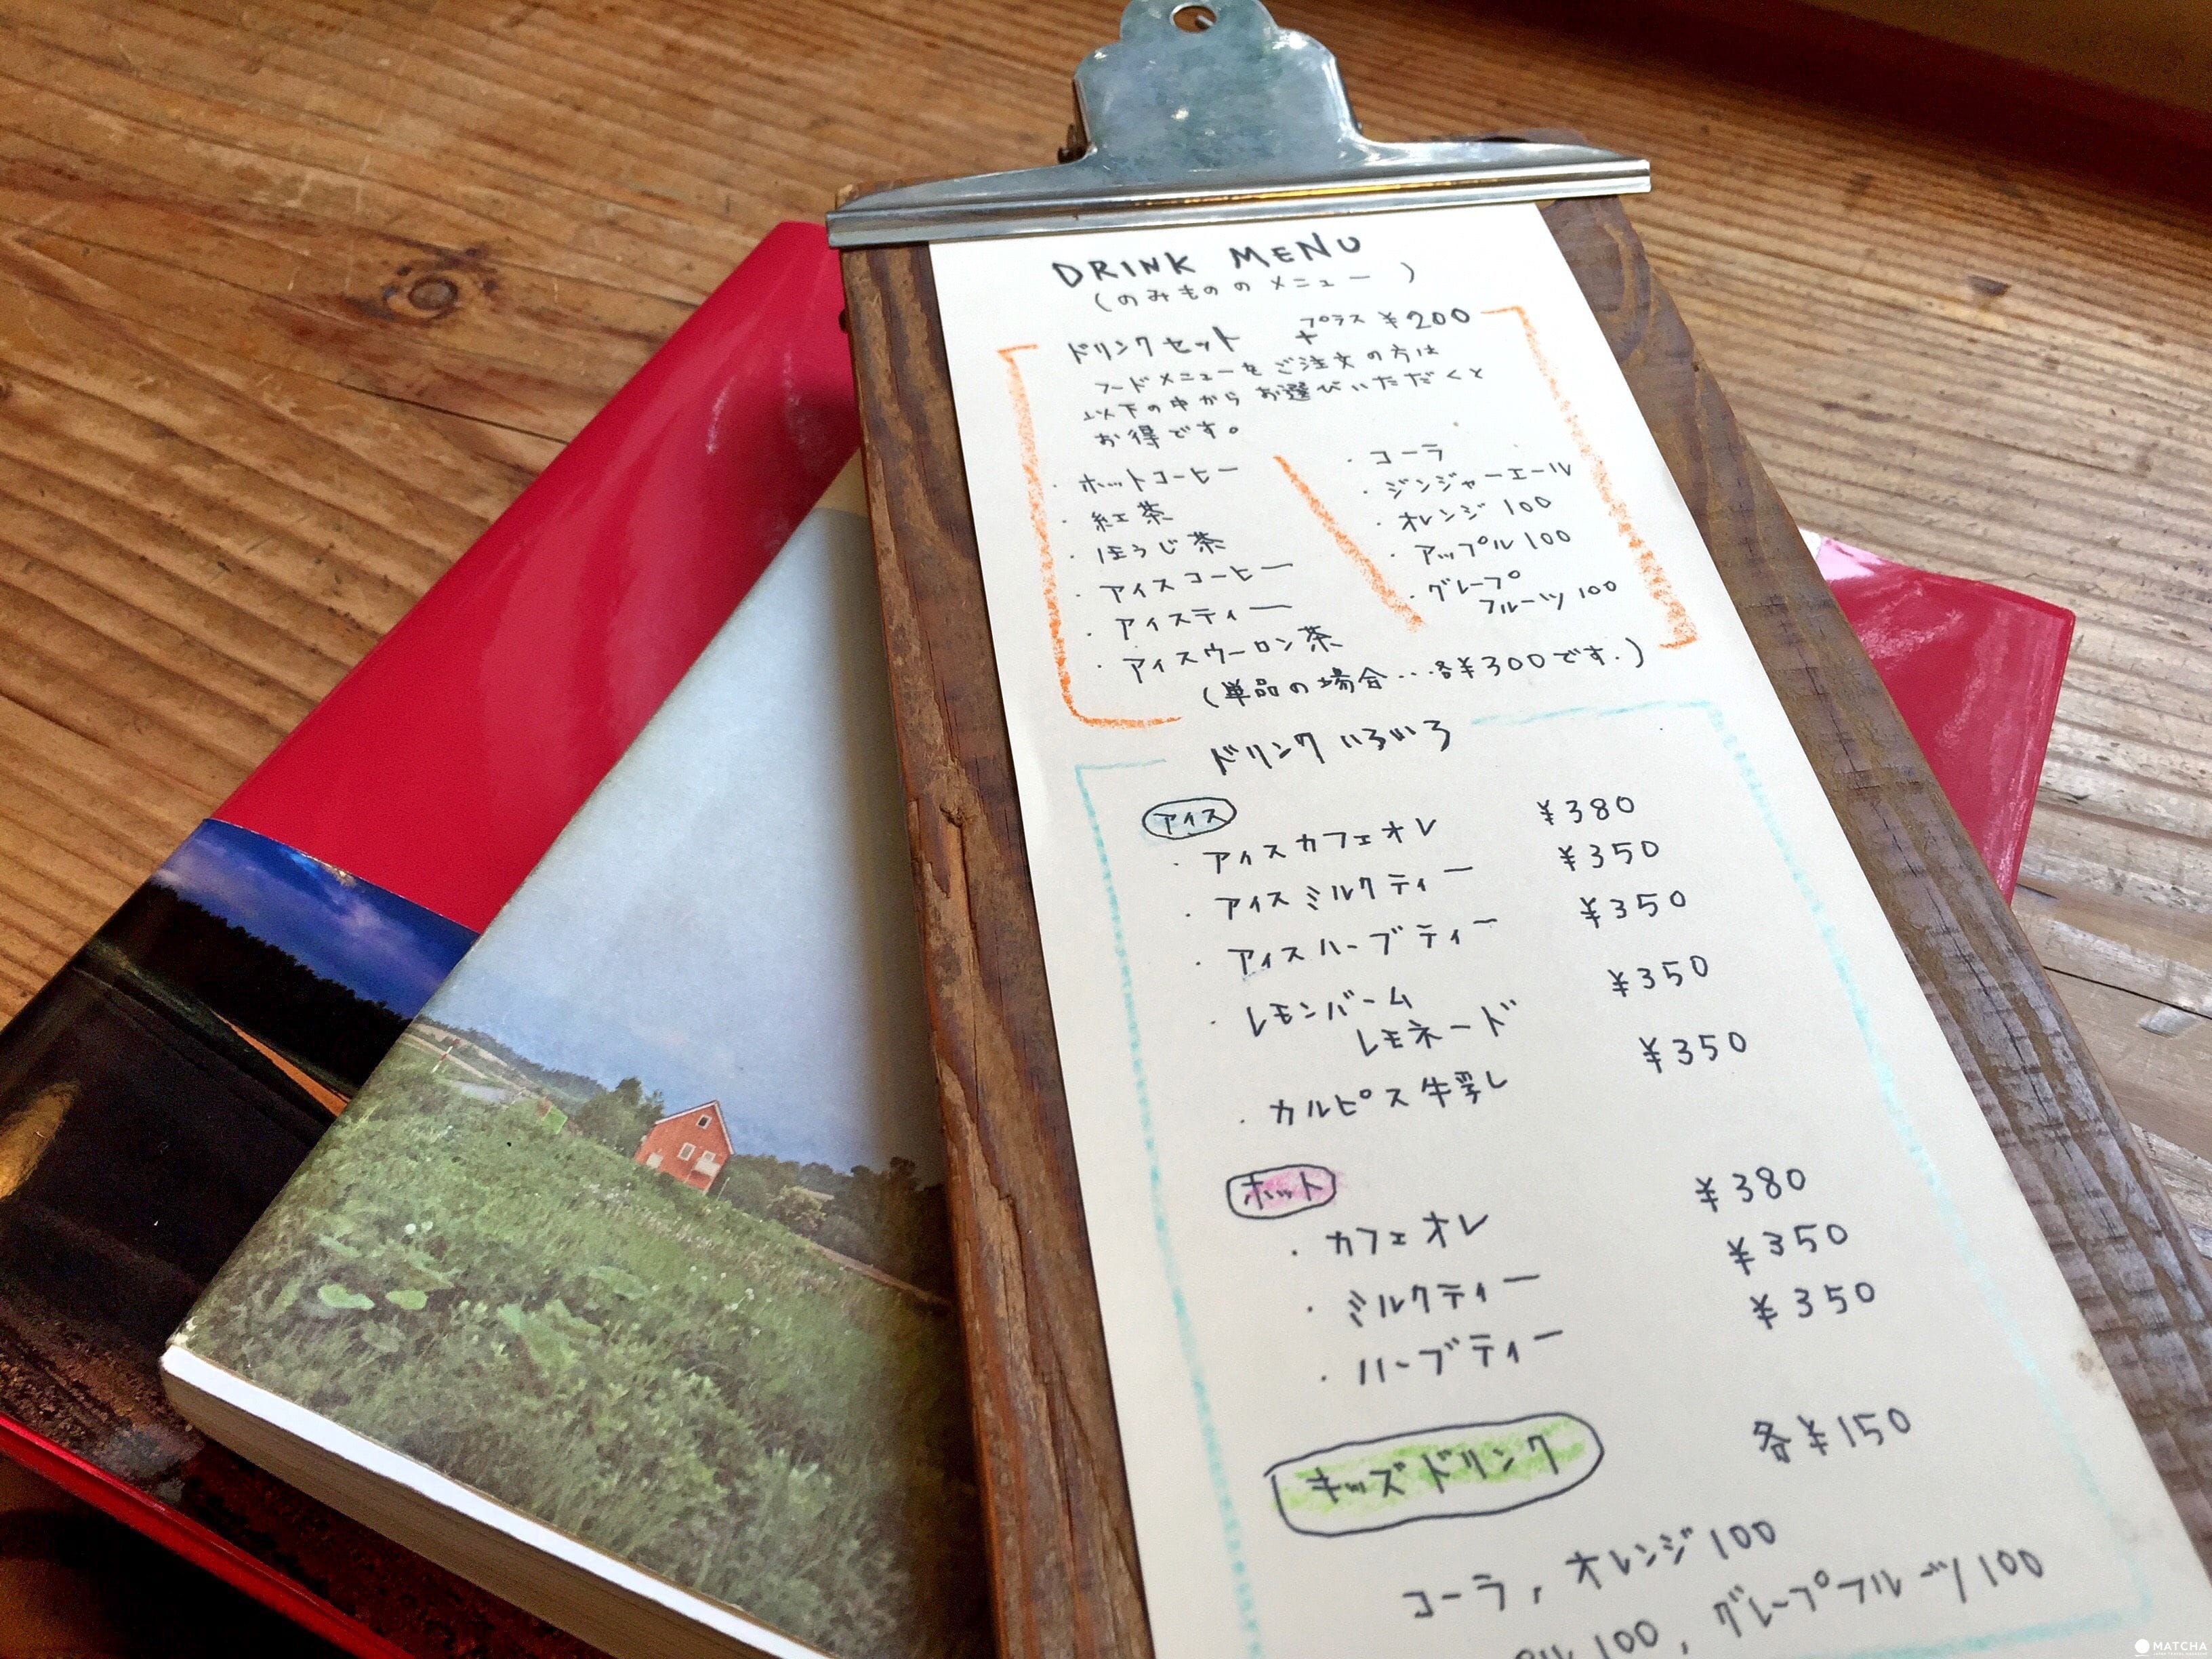 DRINK MENU
(のみもののメニュー)
ドリンクセット +プラス ¥200
フードメニューをご注文の方は
以下の中からお選びいただくと
お得です。
・ホットコーヒー
・紅茶
・ほうじ茶
・アイスコーヒー
・アイスティー
・アイスウーロン茶
・コーラ
・ジンジャーエール
・オレンジ100
・アップル100
・グレープ
フルーツ100
(単品の場合…各¥300です.)
ドリンクいろいろ
アイス
・アイスカフェオレ ¥380
・アイスミルクティー ¥350
・アイスハーブティー ¥350
・レモンバーム
レモネード ¥350
・カルピス牛乳 ¥350
ホット
・カフェオレ ¥380
・ミルクティー ¥350
・ハーブティー ¥350
キッズドリンク 各¥150
コーラ, オレンジ100
ル100, グレープフルーツ100
MATCHA